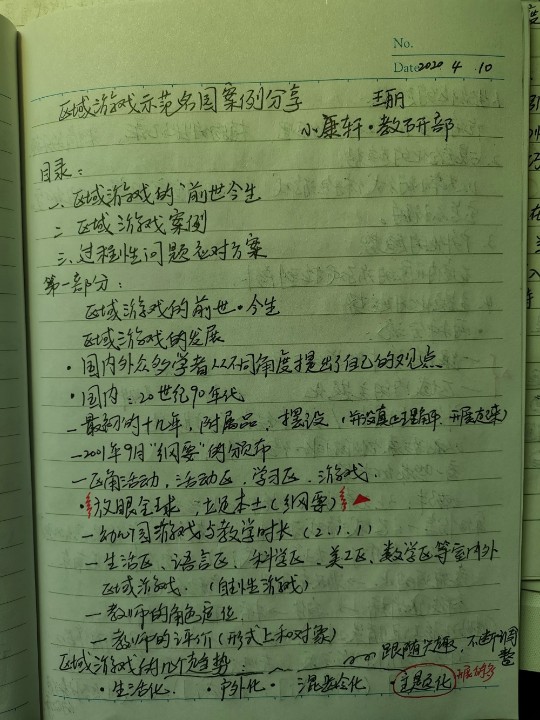 No.
Date 2020 4 10
区域游戏示范名园案例分享 王丽
小康轩·教研部
目录：
一、区域游戏的“前世今生
二 区域游戏案例
三、过程性问题应对方案
第一部分：
区域游戏的前世·今生
区域游戏的发展
·国内外众多学者从不同角度提出了自己的观点
·国内：20世纪90年代
—最初的十几年，附属品，摆设（并没真正理解、开展起来）
—2001年9月“《纲要”的颁布
—区角活动，活动区，学习区，游戏.
·放眼全球 立足本土（《纲要）
—幼儿园游戏与教学时长（2.1.1）
—生活区、语言区、科学区、美工区、数学区等室内外
区域游戏.（自主性游戏）
—教师的角色定位
—教师的评价（形式上和对象）
跟随兴趣，不断调整
区域游戏的几个趋势：
·生活化. ·户外化· 混龄化 ·主题化